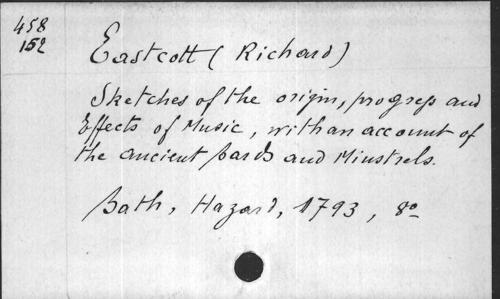 458
152
Eastcott (Richard)
Sketches of the origin, progress and
Effects of Music, with an account of
the ancient Bards and Minstrels.
Bath, Hazard, 1793, 8º